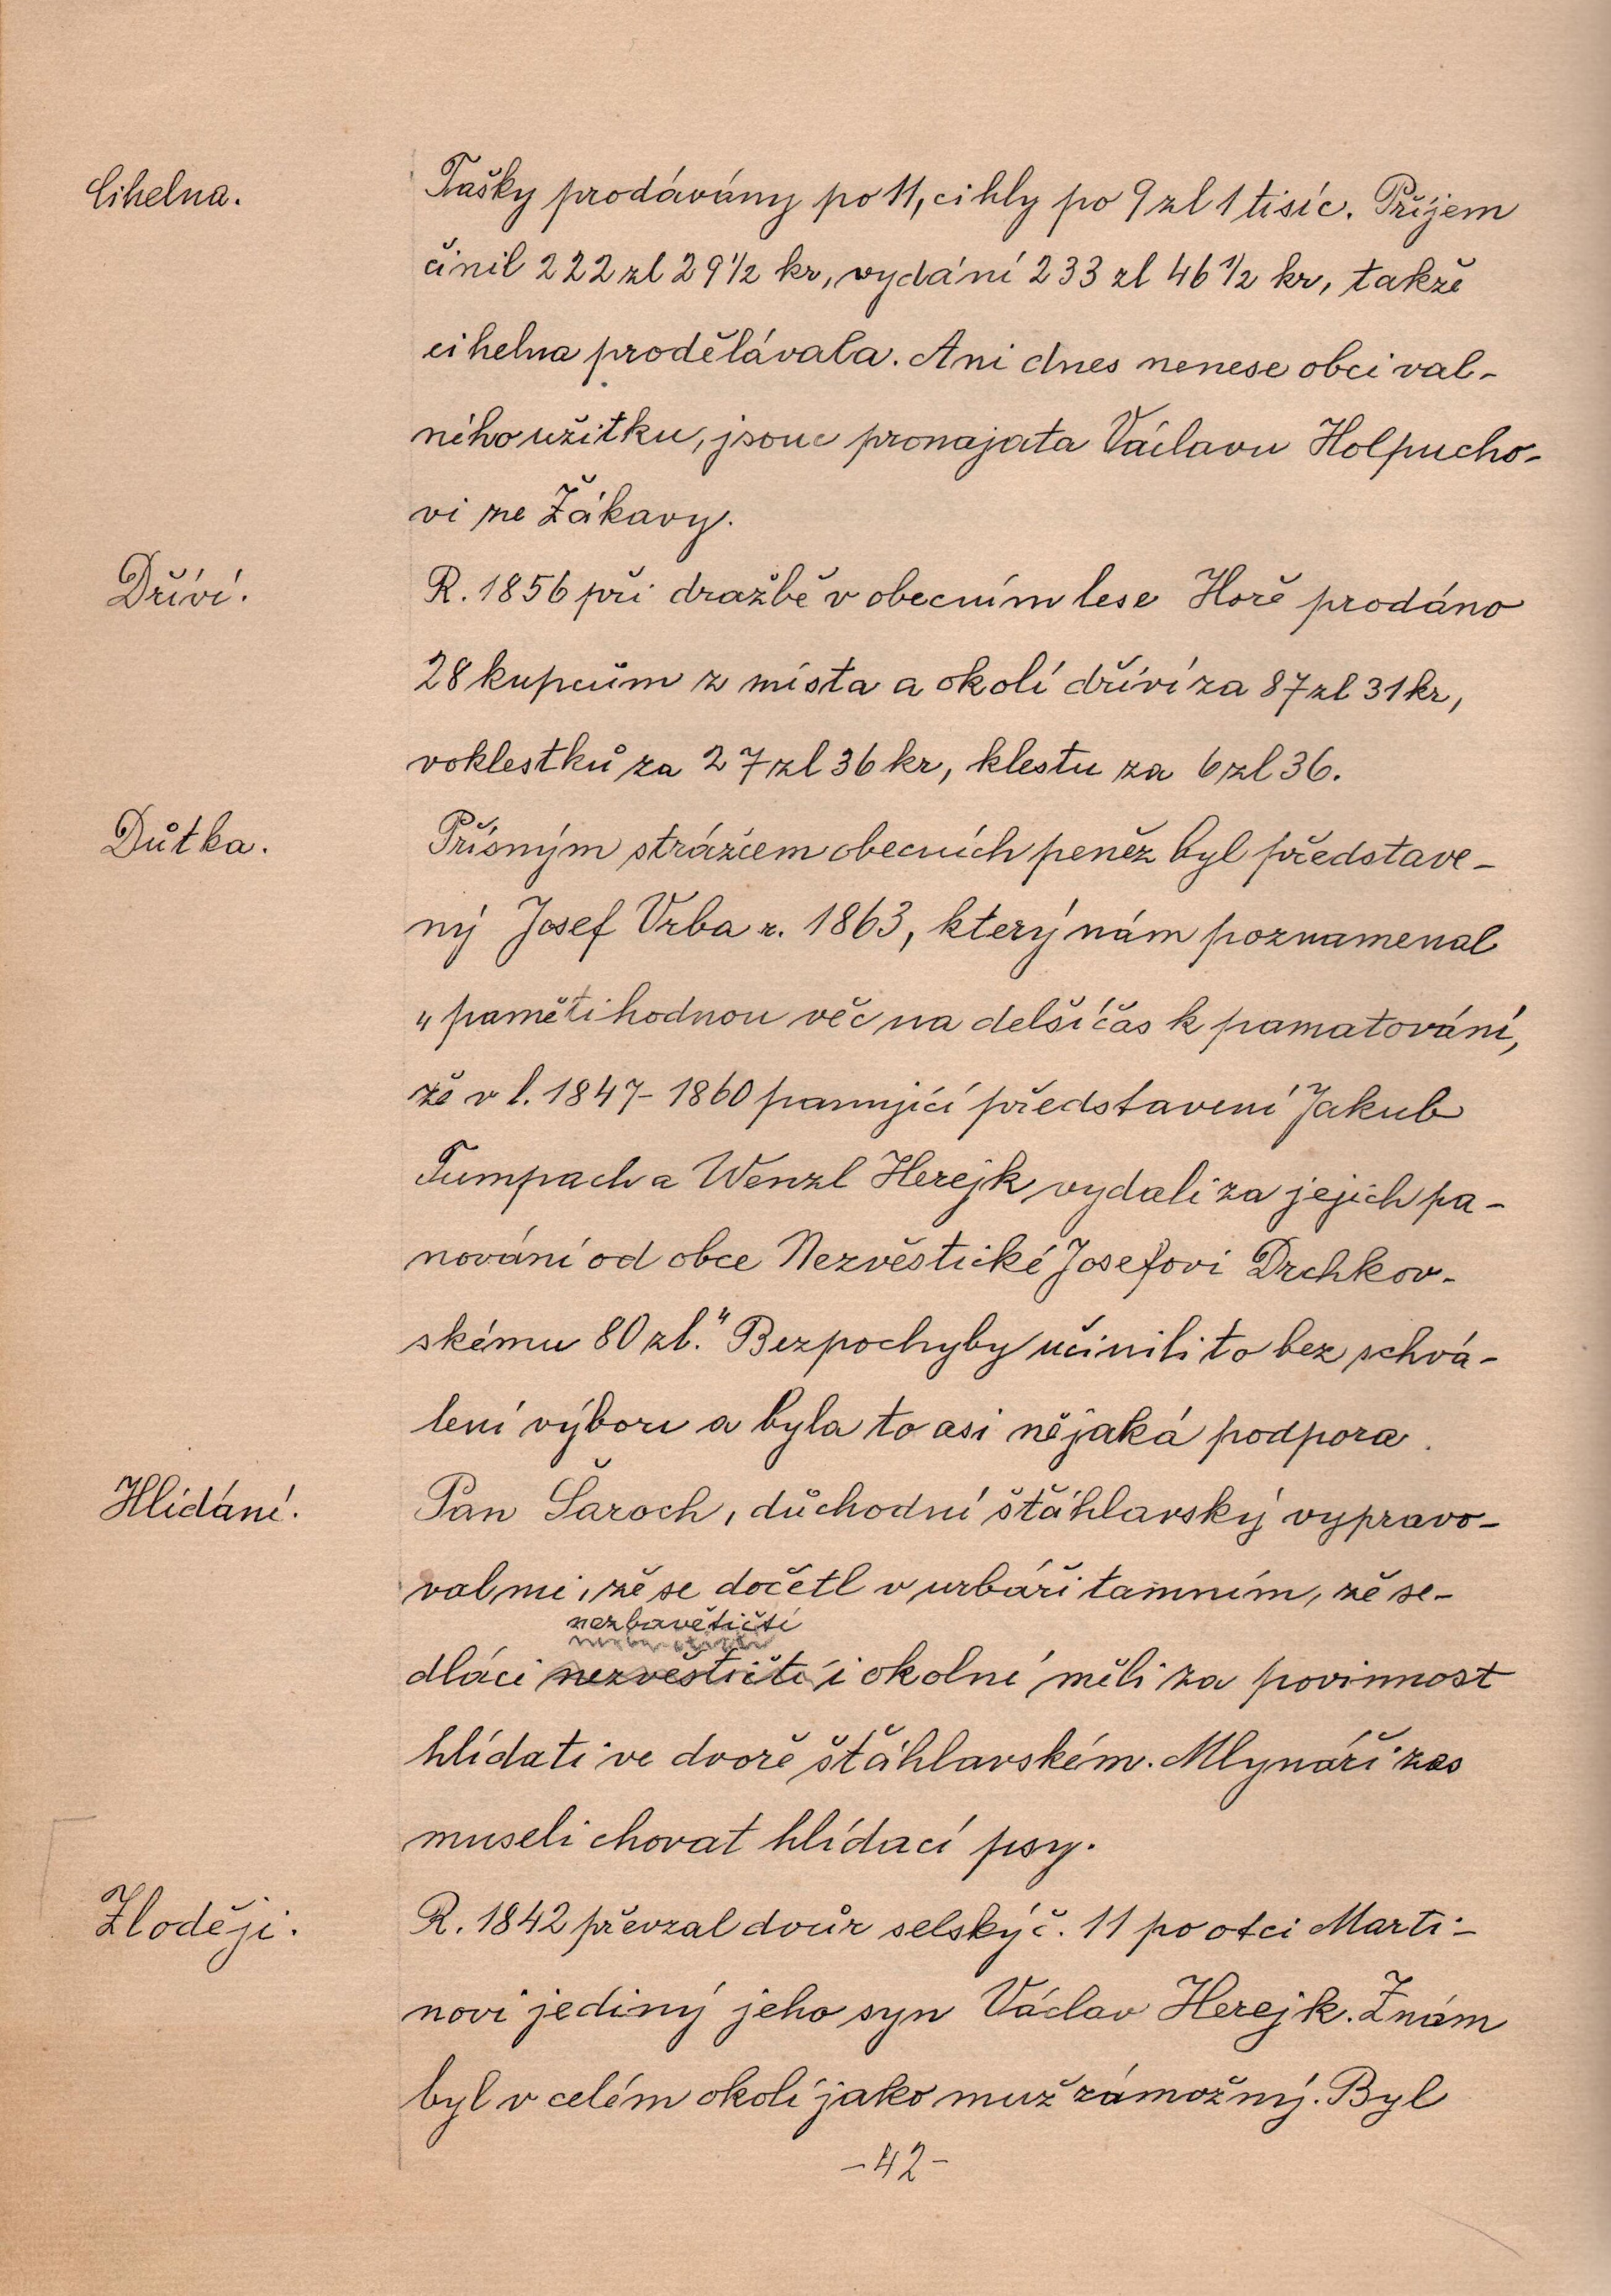 Cihelna.
Tašky prodávány po 11, cihly po 9 zl 1 tisíc. Příjem
činil 222 zl 29 1/2 kr, vydání 233 zl 46 1/2 kr, takže
cihelna prodělávala. Ani dnes nenese obci val-
ného užitku, jsouc pronajata Václavu Holpucho-
vi ze Žákavy.
Dříví.
R. 1856 při dražbě v obecním lese Hoře prodáno
28 kupcům z místa a okolí dříví za 87 zl 31 kr,
voklestků za 27 zl 36 kr, klestu za 6 zl 36.
Důtka.
Přísným strážcem obecních peněz byl představe-
ný Josef Vrba r. 1863, který nám poznamenal
„pamětihodnou věc na delší čas k pamatování,
že v l. 1847-1860 panující představení Jakub
Tumpach a Wenzl Herejk vydali za jejich pa-
nování od obce Nezvěstické Josefovi Drchkov-
skému 80 zl." Bezpochyby učinili to bez schvá-
lení výboru a byla to asi nějaká podpora.
Hlídání.
Pan Šaroch, důchodní šťáhlavský vypravo-
val mi, že se dočetl v urbáři tamním, že se-
nezbavětičtí
dláci nezvěstičtí i okolní měli za povinnost
hlídati ve dvoře šťáhlavském. Mlynáři zas
museli chovat hlídací psy.
Zloději.
R. 1842 převzal dvůr selský č. 11 po otci Marti-
novi jediný jeho syn Václav Herejk. Znám
byl v celém okolí jako muž zámožný. Byl
-42-